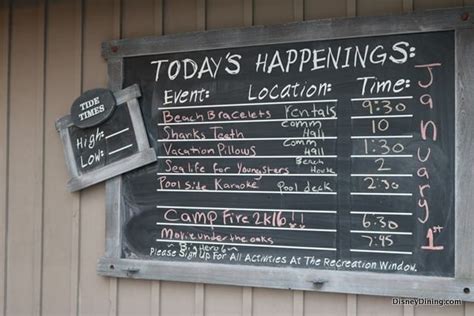 TODAY'S HAPPENINGS:
EVENT: LOCATION: TIME:
Beach Bracelets rentals 9:30
Sharks Teeth Comm Hall 10
Vacation Pillows Comm Hall 1:30
Sea life for Youngsters Beach House 2
Pool side Karaoke Pool deck 2:30
CampFire 2k16!! 6:30
Movie under the oaks 7:45
~ Big Hero 6 ~
Please Sign Up For All Activities At The Recreation Window.
January 1st
TIDE
TIMES
High:
Low:
DisneyDining.com